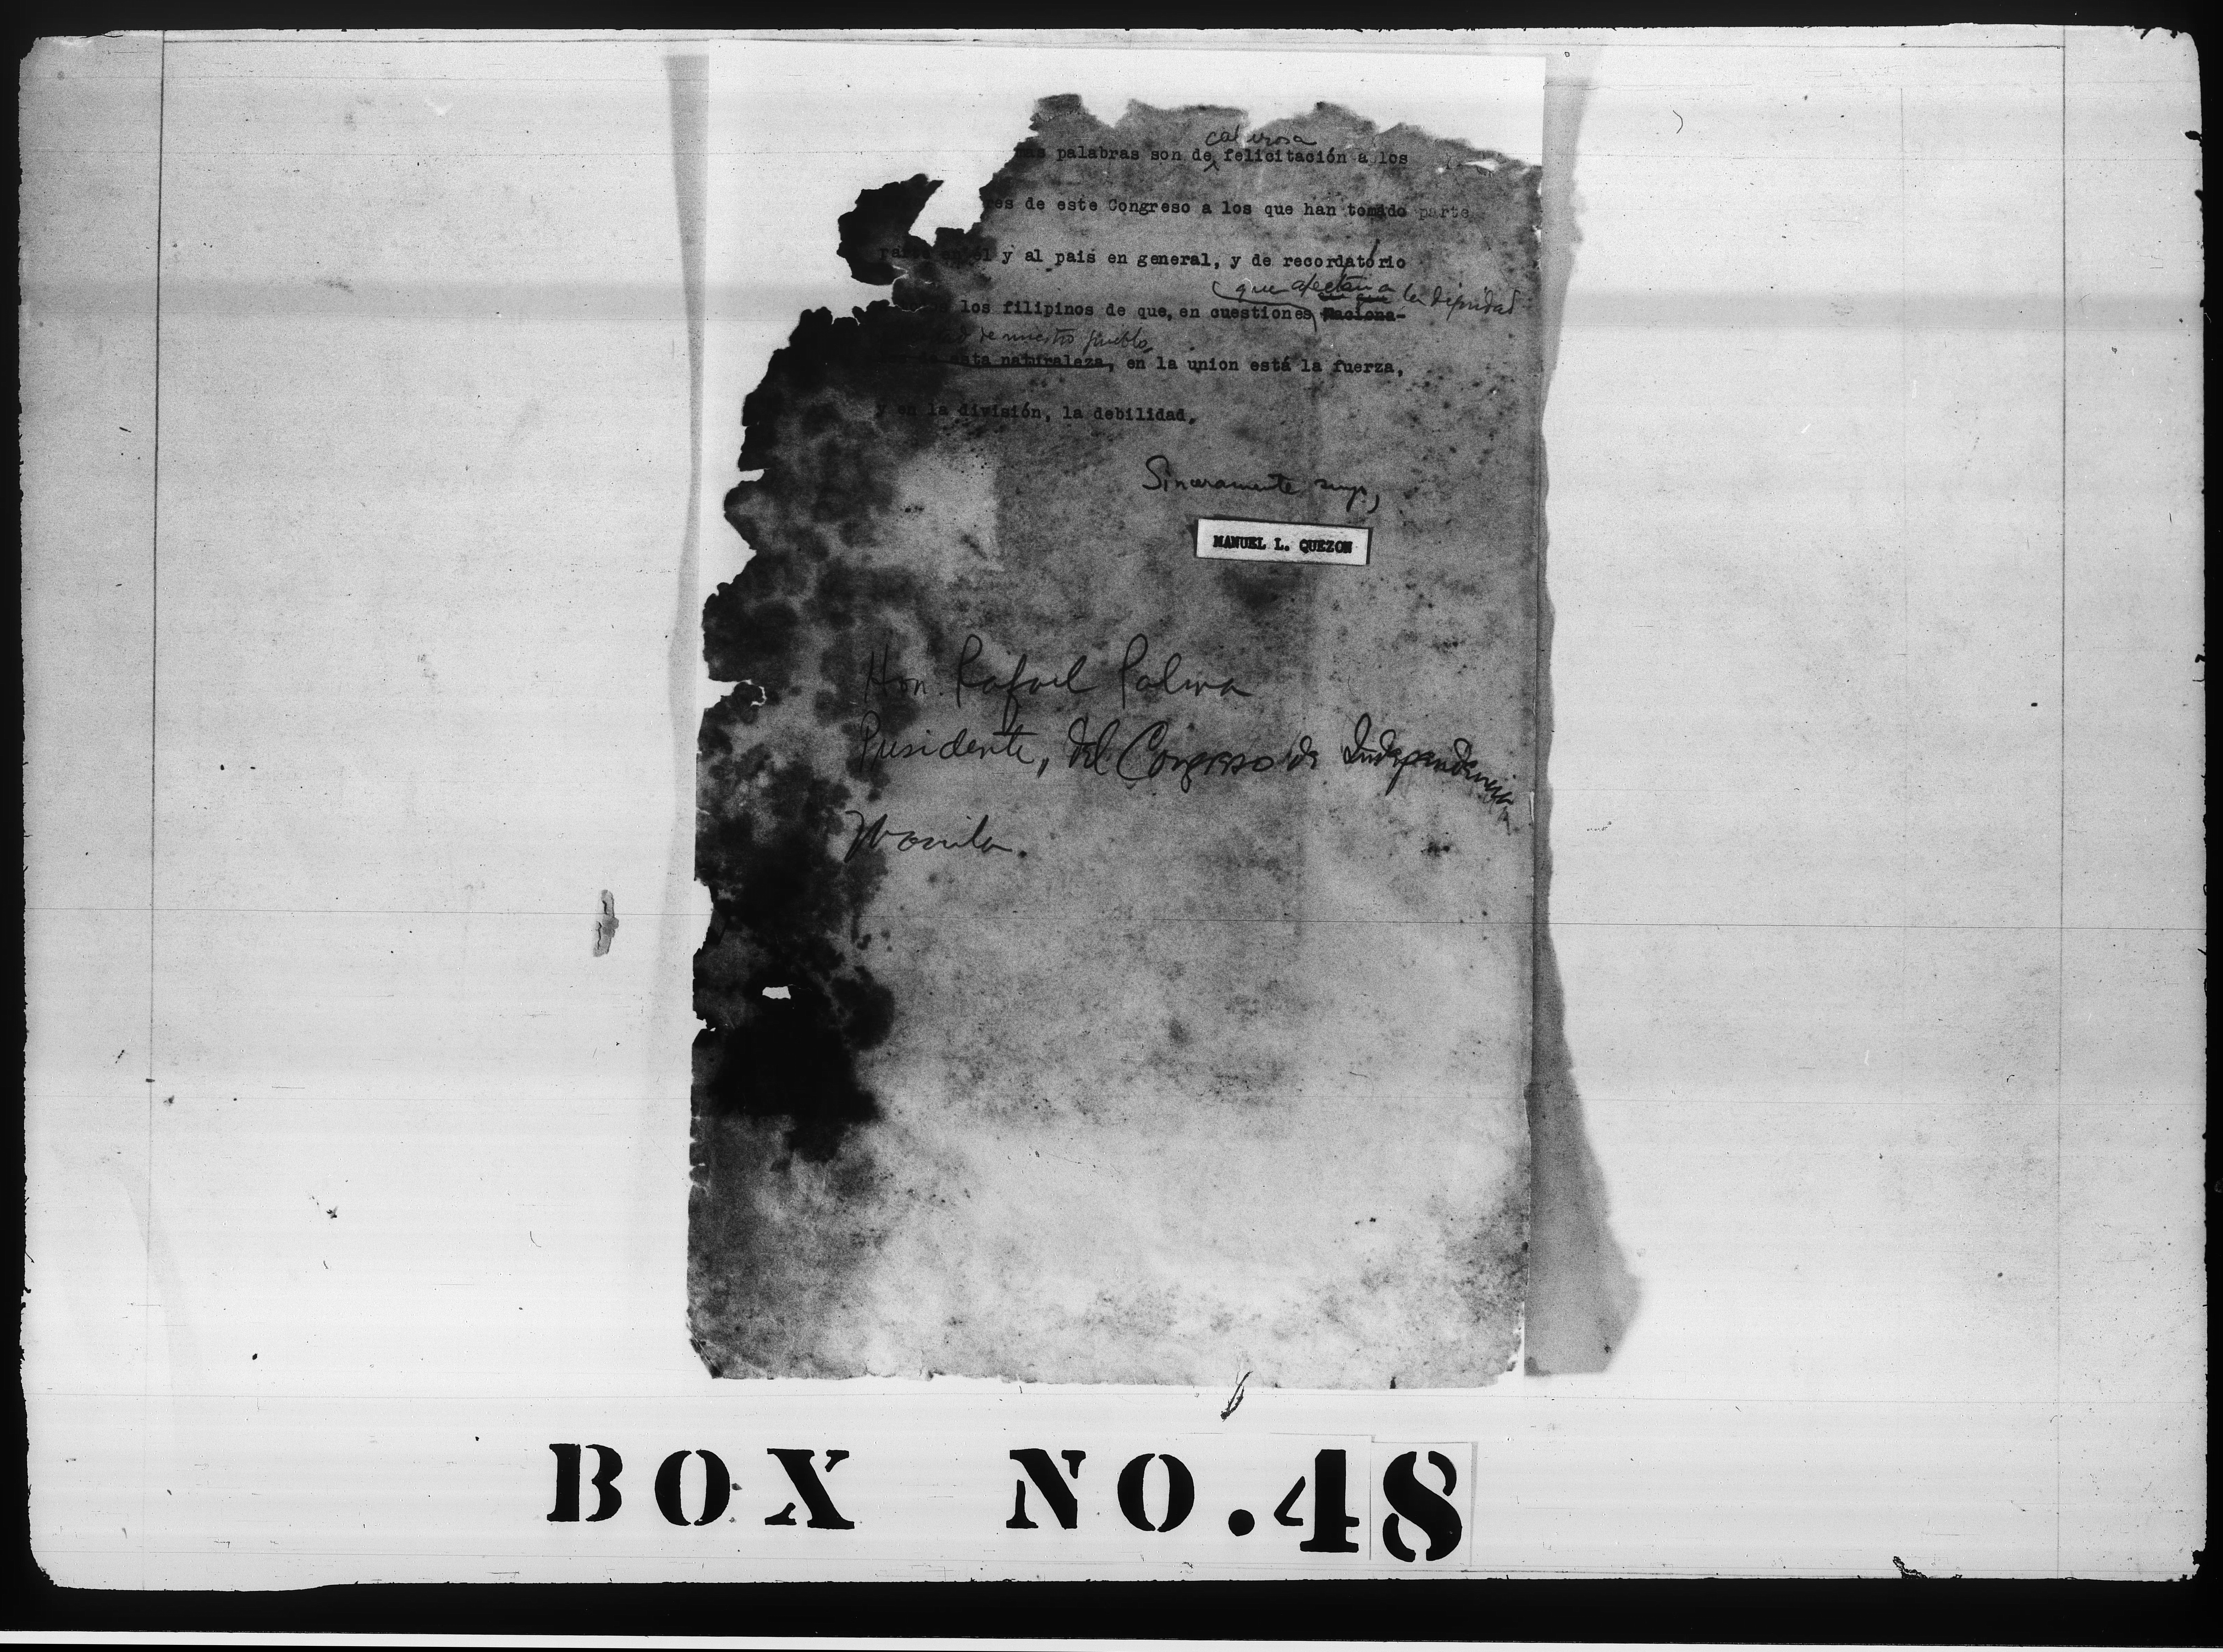 calurosa
palabras son de felicitación a los
es de este Congreso a los que han tomado parte
él y al pais en general, y de recordatorio
que afectan a la dignidad
los filipinos de que, en cuestiones Naciona-
de nuestro pueblo
esta naturaleza, en la union está la fuerza,
y en la división, la debilidad.
Sinceramente suyo,
MANUEL L. QUEZON
Hon. Rafael Palma
Presidente, del Congreso de Independencia
Manila.
BOX NO. 48